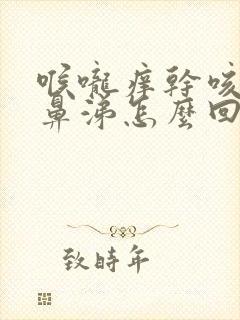 喉嚨痒幹咳
鼻涕怎麼回
致時年